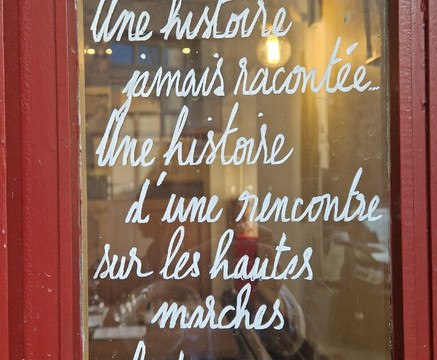 Une histoire
jamais racontée...
Une histoire
d'une rencontre
sur les hautes
marches